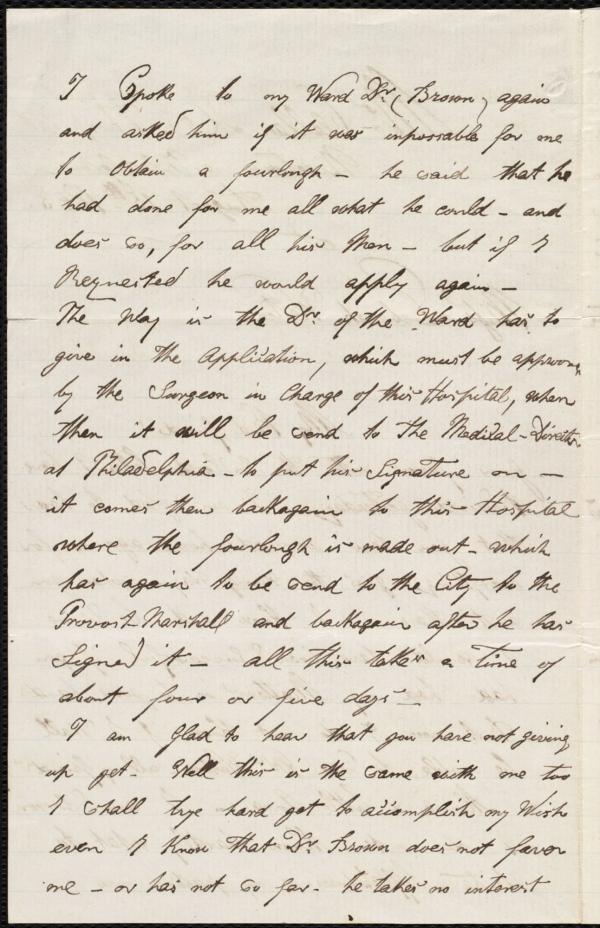 I Spoke to my Ward Dr (Brown) again
and asked him if it was impossable for me
to obtain a fourlough – he said that he
had done for me all what he could – and
does so, for all his Men – but if I
Requested he would apply again –
The Way is the Dr of the Ward has to
give in the Application, which must be approved
by the Surgeon in Charge of this Hospital, when
then it will be send to the Medical-Director
at Philadelphia – to put his Signature on –
it comes then backagain to this Hospital
where the fourlough is made out – which
has again to be send to the City to the
Provost-Marshall and backagain after he has
Signed it – all this takes a Time of
about four or five days –
I am Glad to hear that you have not giving
up yet – Well this is the same with me too
I shall trye hard yet to accomplish my Wish
even I Know that Dr Brown does not favor
me – or has not so far – he takes no interest